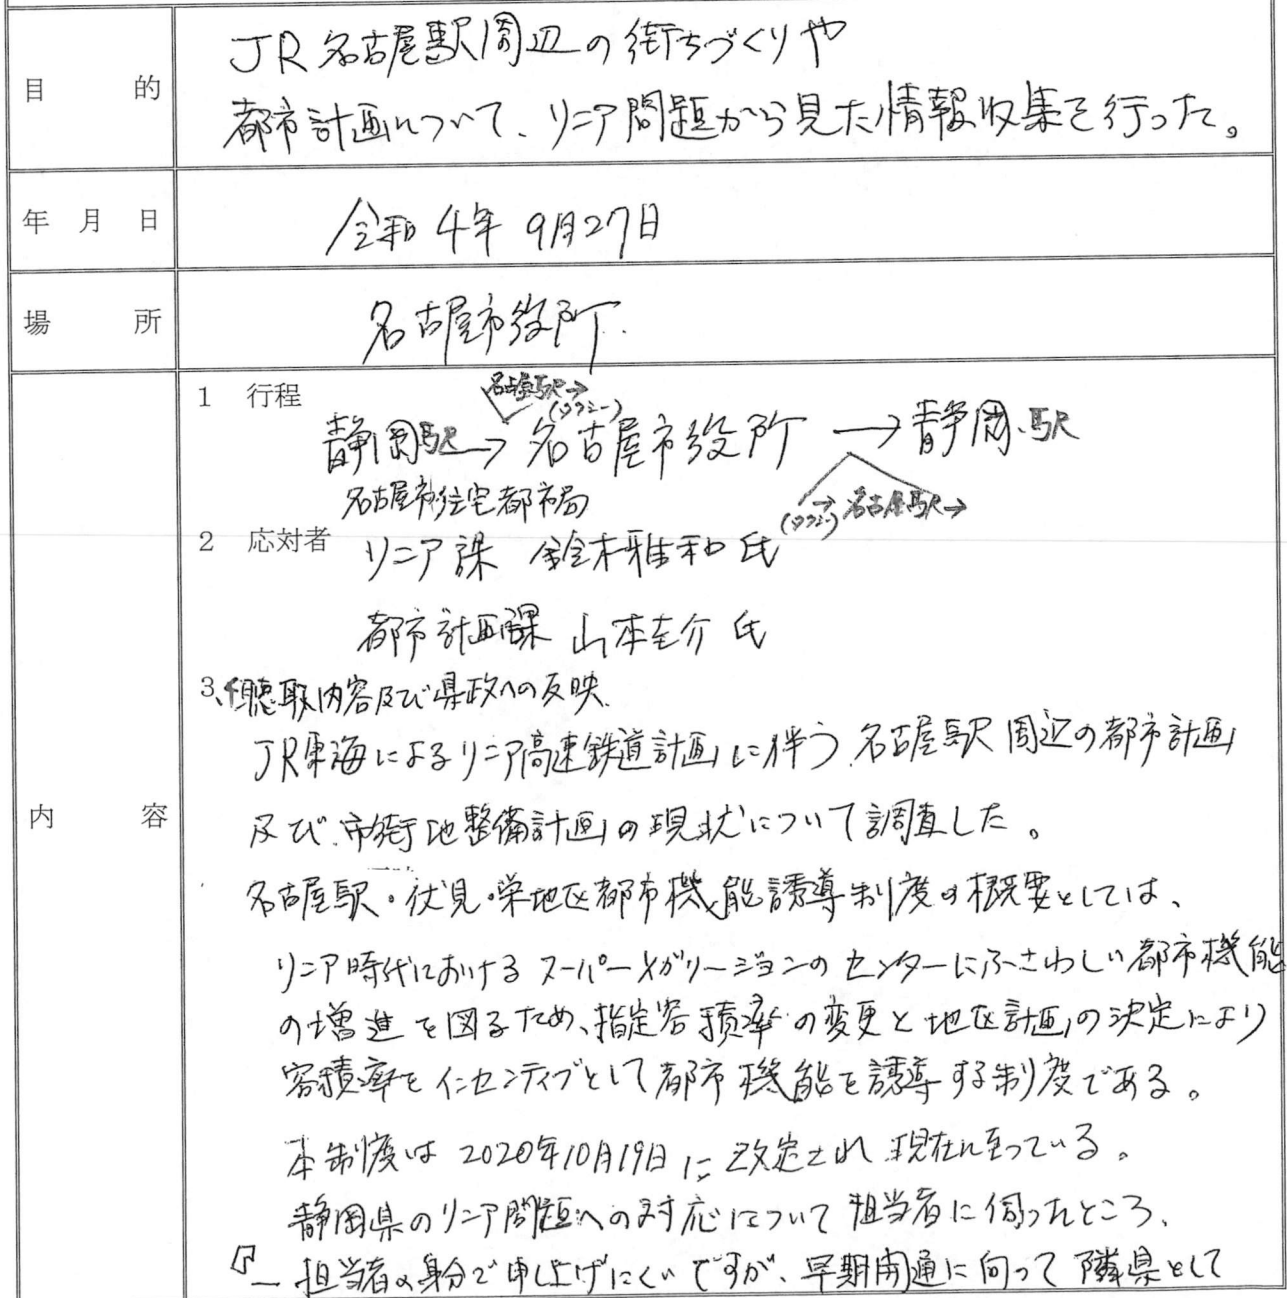 JR名古屋駅周辺の街ちづくりや
目的
都市計画について、リニア問題から見た情報収集を行った。
年月日
令和4年9月27日
場所
名古屋市役所
1 行程
名古屋駅→
(タクシー)
静岡駅→名古屋市役所→静岡駅
(タクシー)→名古屋駅→
名古屋市住宅都市局
2 応対者
リニア課 鈴木雅和氏
都市計画課 山本圭介氏
3、聴取内容及び県政への反映
JR東海によるリニア高速鉄道計画に伴う名古屋駅周辺の都市計画
内容
及び市街地整備計画の現状について調査した。
名古屋駅・伏見・栄地区都市機能誘導制度の概要としては、
リニア時代におけるスーパーメガリージョンのセンターにふさわしい都市機能
の増進を図るため、指定容積率の変更と地区計画の決定により
容積率をインセンティブとして都市機能を誘導する制度である。
本制度は2020年10月19日に改定され現在に至っている。
静岡県のリニア問題への対応について担当者に伺ったところ、
担当者の身分で申し上げにくいですが、早期開通に向って隣県として